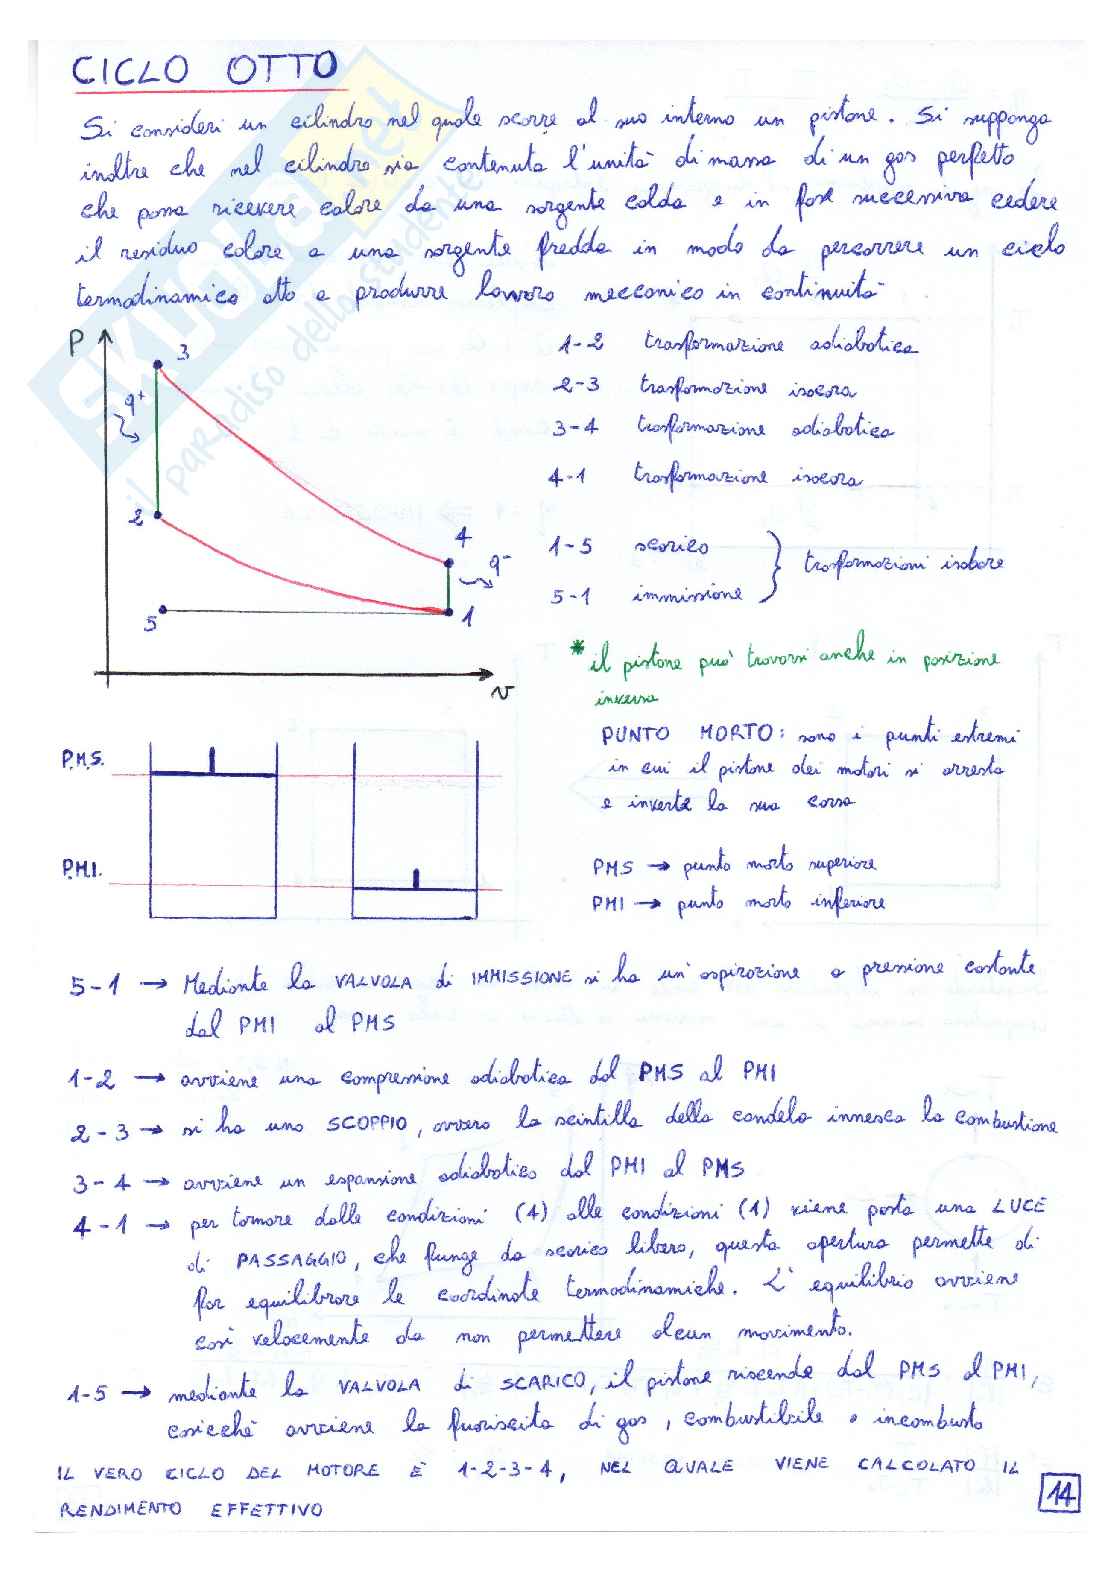 CICLO OTTO
Si consideri un cilindro nel quale scorre al suo interno un pistone. Si supponga
inoltre che nel cilindro sia contenuta l'unità di massa di un gas perfetto
che possa ricevere calore da una sorgente calda e in fase successiva cedere
il residuo calore a una sorgente fredda in modo da percorrere un ciclo
termodinamico otto e produrre lavoro meccanico in continuità
P
3
q+
2
4
q-
5
1
v
1-2 trasformazione adiabatica
2-3 trasformazione isocora
3-4 trasformazione adiabatica
4-1 trasformazione isocora
1-5 scarico
5-1 immissione
} trasformazioni isobare
* il pistone può trovarsi anche in posizione
inversa
PUNTO MORTO: sono i punti estremi
in cui il pistone dei motori si arresta
e inverte la sua corsa
P.M.S.
P.M.I.
PMS → punto morto superiore
PMI → punto morto inferiore
5-1 → Mediante la VALVOLA di IMMISSIONE si ha un'aspirazione a pressione costante
dal PMI al PMS
1-2 → avviene una compressione adiabatica dal PMS al PMI
2-3 → si ha uno SCOPPIO, ovvero la scintilla della candela innesca la combustione
3-4 → avviene un espansione adiabatica dal PMI al PMS
4-1 → per tornare dalle condizioni (4) alle condizioni (1) viene posta una LUCE
di PASSAGGIO, che funge da scarico libero, questa apertura permette di
far equilibrare le coordinate termodinamiche. L'equilibrio avviene
così velocemente da non permettere alcun movimento.
1-5 → mediante la VALVOLA di SCARICO, il pistone riscende dal PMS al PMI,
cosicchè avviene la fuoriscita di gas, combustibile e incombusto
IL VERO CICLO DEL MOTORE È 1-2-3-4, NEL QUALE VIENE CALCOLATO IL
RENDIMENTO EFFETTIVO
14
SKUOLA.net
il paradiso dello studente